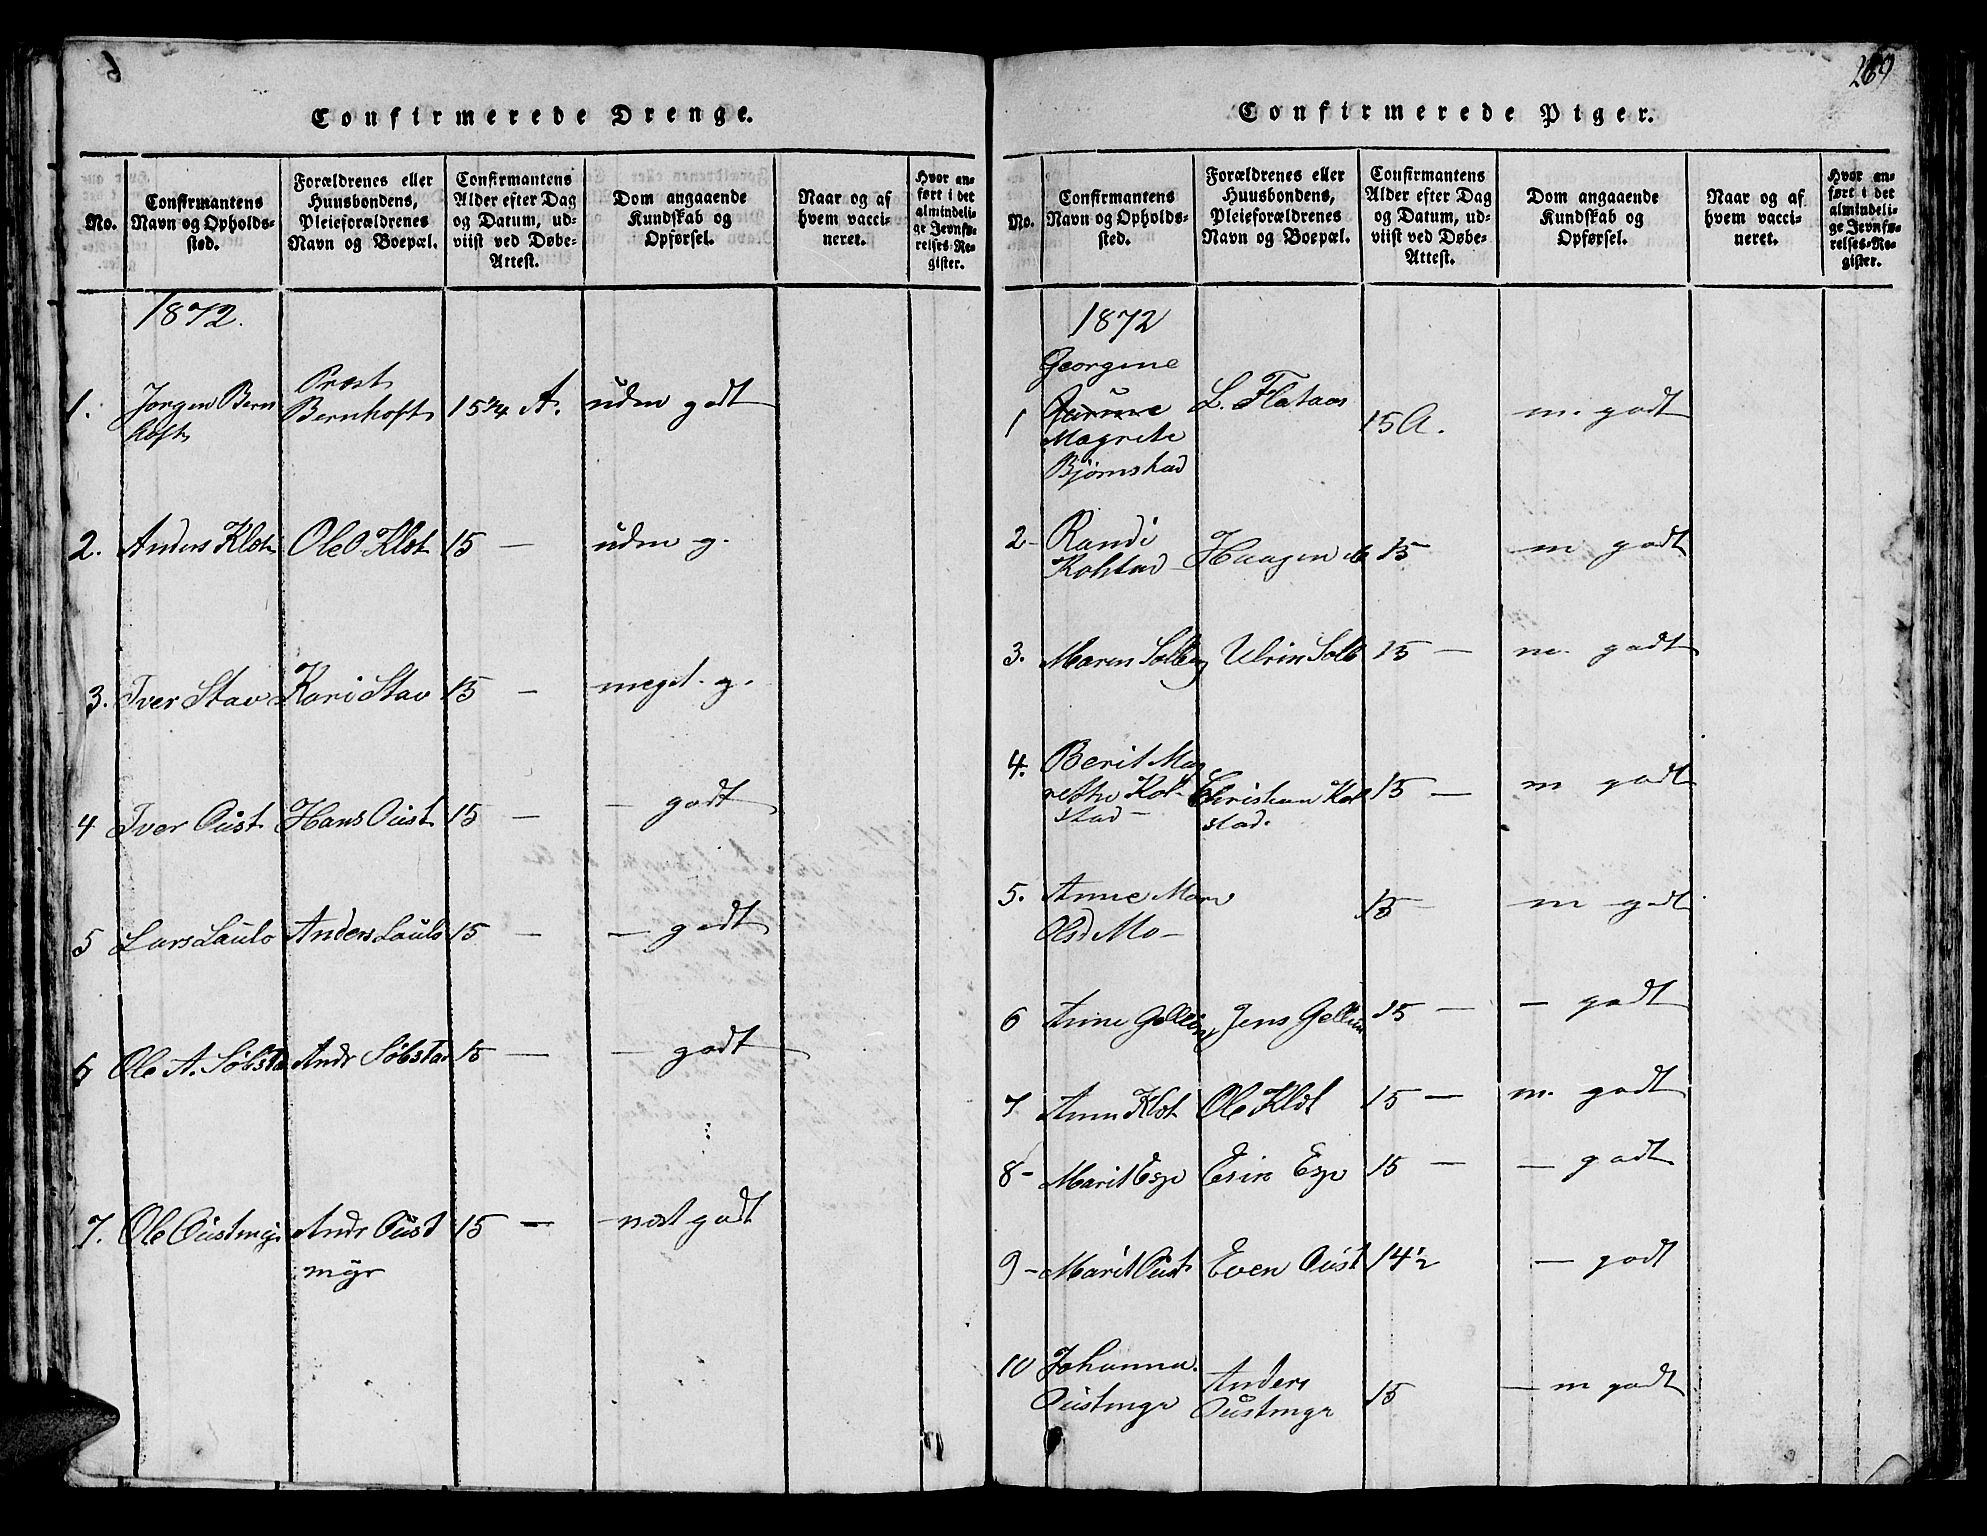 Confirmerede Drenge.
No.
Confirmantens
Navn og Opholds-
sted.
Forældrenes eller
Huusbondens,
Pleieforældrenes
Navn og Boepæl.
Confirmantens
Alder efter Dag
og Datum, ud-
viist ved Døbe-
Attest.
Dom angaaende
Kundskab og
Opførsel.
Naar og af
hvem vacci-
neret.
Hvor an-
ført i det
almindeli-
ge Jevnfø-
relses-Re-
gister.
1872.
1. Jørgen Bern Provst 15 3/4 A. üdm godt
hoft Bernhoft
2. Anders Klet Ole O Klet 15 — üdm g.
3. Iver Stav Kari Stav 15 — meget g.
4 Iver Oüst Hans Oüst 15 — — godt
5 Lars Laulo Anders Laulo 15 — — godt
6 Ole A. Söbstad Andr Söbstad 15 — — godt
7. Ole Oüstmyr Andr Oüst 15 — næst godt
myr
269
Confirmerede Piger.
No.
Confirmantens
Navn og Opholds-
sted.
Forældrenes eller
Huusbondens,
Pleieforældrenes
Navn og Boepæl.
Confirmantens
Alder efter Dag
og Datum, ud-
viist ved Døbe-
Attest.
Dom angaaende
Kundskab og
Opførsel.
Naar og af
hvem vacci-
neret.
Hvor an-
ført i det
almindeli-
ge Jevnfø-
relses-Re-
gister.
1872
Georgine
1 L. Flataas 15 A. m. godt
Magrete
Bjørnstad
2 - Randi Haagen 15 — m godt
Kolstad
3. Maren Solberg Ulrin Solb 15 — m. godt
4. Berit Mag
rethe Kol- Christian Kol 15 — m godt
stad — stad.
5. Anne Mari 15 — m godt
Olsd Mo —
6 Anne Gelling Jens Gelling 15 — — godt
7 Anne Klet Ole Klet 15 — m. godt
8 - Marit Esp Esin Esp 15 — — godt
9 - Marit Oüst Even Oüst 14 1/2 — godt
10 Johanna Anders 15 — m godt
Oüstmyr Oüstmyr